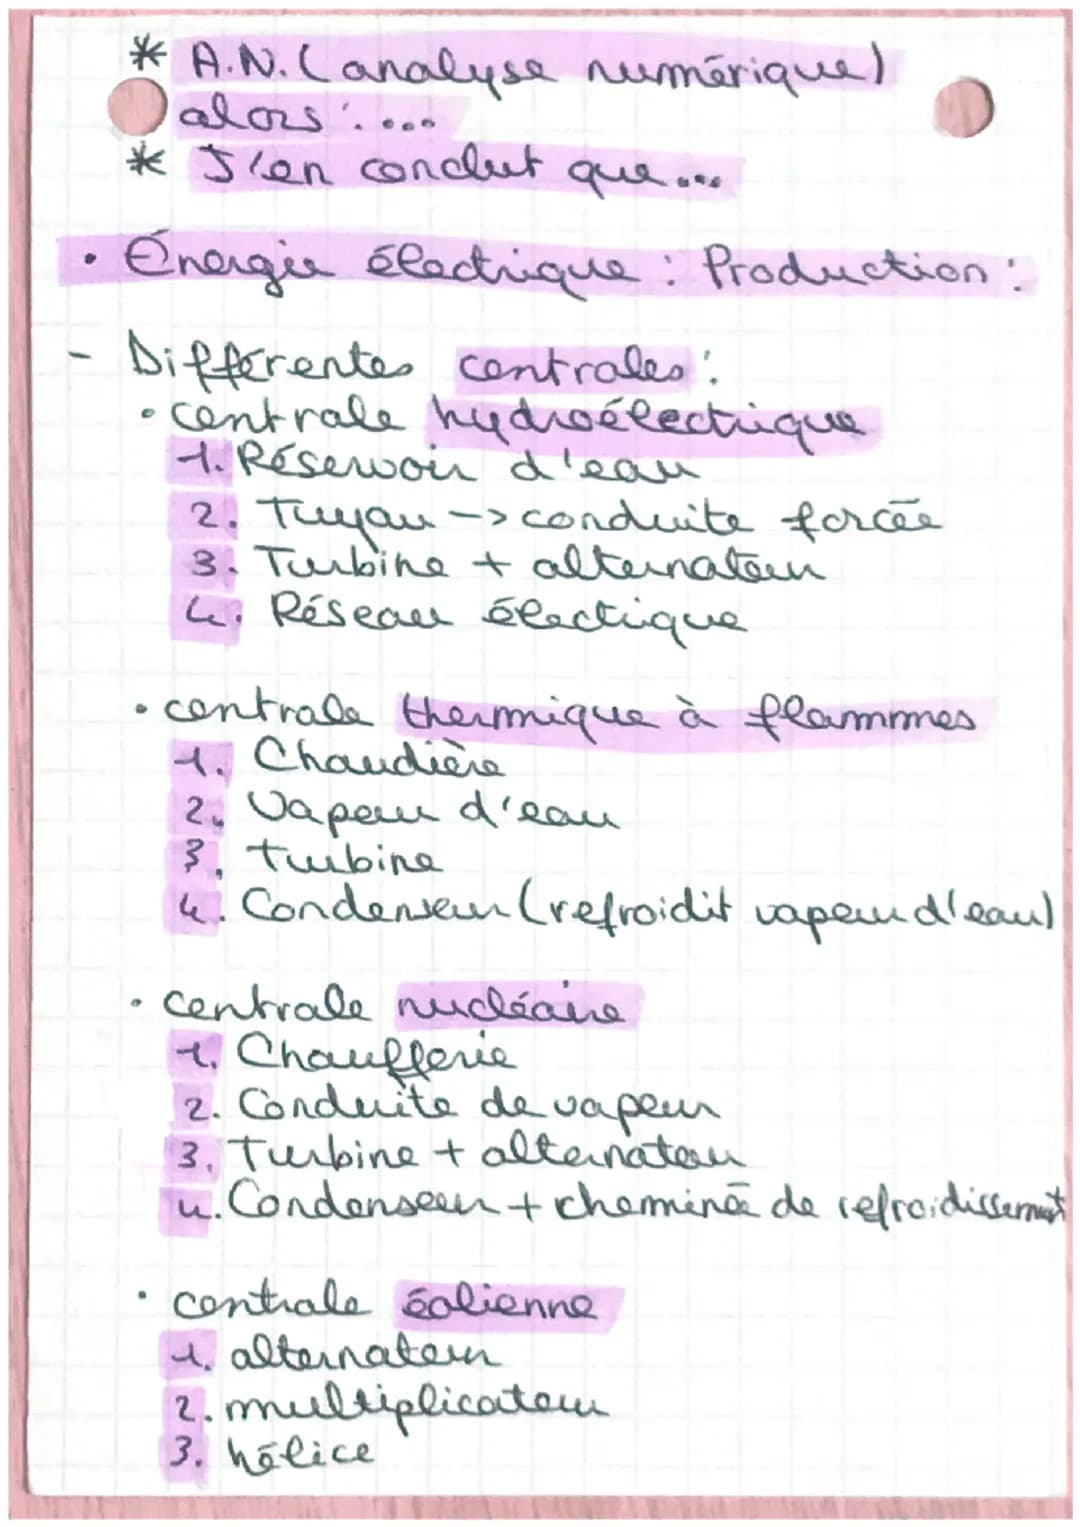 * A.N. (analyse numérique)
alors : ...
* J'en conclut que ...
• Énergie électrique : Production :
- Différentes centrales :
• centrale hydroélectrique
1. Réservoir d'eau
2. Tuyau -> conduite forcée
3. Turbine + alternateur
4. Réseau électrique
• centrale thermique à flammes
1. Chaudière
2. Vapeur d'eau
3. turbine
4. Condenseur (refroidit vapeur d'eau)
• centrale nucléaire
1. Chaufferie
2. Conduite de vapeur
3. Turbine + alternateur
4. Condenseur + cheminée de refroidissement
• centrale éolienne
1. alternateur
2. multiplicateur
3. hélice